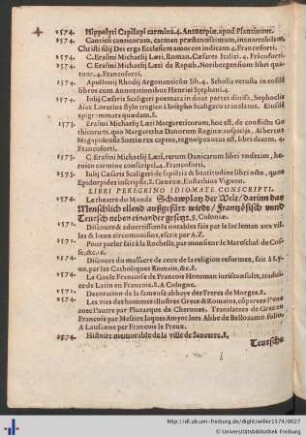 1574. Hippolyti Capilupi carmina. 4. Antuerpiæ, apud Plantinum.
1574. Cantici canticorum, carmen præstantissimum, inenarrabilem
Christi filij Dei erga Ecclesiam amorem indicans. 4. Francoforti.
1574. C. Erasmi Michaelij Læti, Roman. Cæsares Italici. 4. Francoforti.
1574. C. Erasmi Michaelij Læti de Repub. Noribergensium libri quatuor.
4. Francoforti.
1574. Apollonij Rhodij Argonauticōn lib. 4. Scholia vetusta in eosdē
libros cum Annotationibus Henrici Stephani. 4.
1574. Iulij Cæsaris Scaligeri poemata in duas partes diuisa, Sophoclis
Aiax Lorarius stylo tragico à Iosepho Scaligero translatus. Eiusdē
epigrammata quædam. 8.
1573. Erasmi Michaelij Læti Margareticorum, hoc est, de conflictu Gothicorum,
quo Margaretha Danorum Reginæ auspicijs, Albertus
Megapolensis Suetiæ rex captus, regnoque exutus est, libri decem. 4.
Francoforti.
1573. C. Erasmi Michaelij Læti, rerum Danicarum libri vndecim, heroico
carmine conscripti. 4. Francoforti.
1573. Iulij Cæsaris Scaligeri de sapiētia & beatitudine libri octo, quos
Epidorpides inscripsit. 8. Geneuæ, Eustathius Vignon.
LIBRI PEREGRINO IDIOMATE CONSCRIPTI.
1574. Le theatre du Monde Schawplatz der Welt / darinn das
Menschlich ellend außgefürt wirdt / Frantzösisch vnnd
Teutsch neben einander gesetzt. 8. Coloniæ.
1574. Discours & aduertissemēs notables sur
& lieux circonuoisins, escrit par
1572. Pour parler fait à la Rochelle, par monsieur le Mareschal de Cosse,
&c. 8.
1574. Discours du massacre de ceux de la religion reformee, fait à Lyon,
par les Catholiques Romains, &c. 8.
1574. La Gaule Francoise de Francois Hottoman iurisconsulte, traduite
de Latin en Francois. 8. A Cologne.
1571. Decoration de la fameuse abbaye des Freres de Morges. 8.
1574. Les vies des hommes illustres Grecs & Romains, cōparees l'vne
auec l'autre par Plutarque de Cheronee. Translatees de Grec en
Francois par Messire Iaques Amyot lors Abbé de Bellozane. folio.
A Lausanne par Francois le Preux.
1574. Histoire memorable de la ville de Sancerre. 8.
Teutsche
http://dl.ub.uni-freiburg.de/diglit/willer1574/0027
© Universitätsbibliothek Freiburg